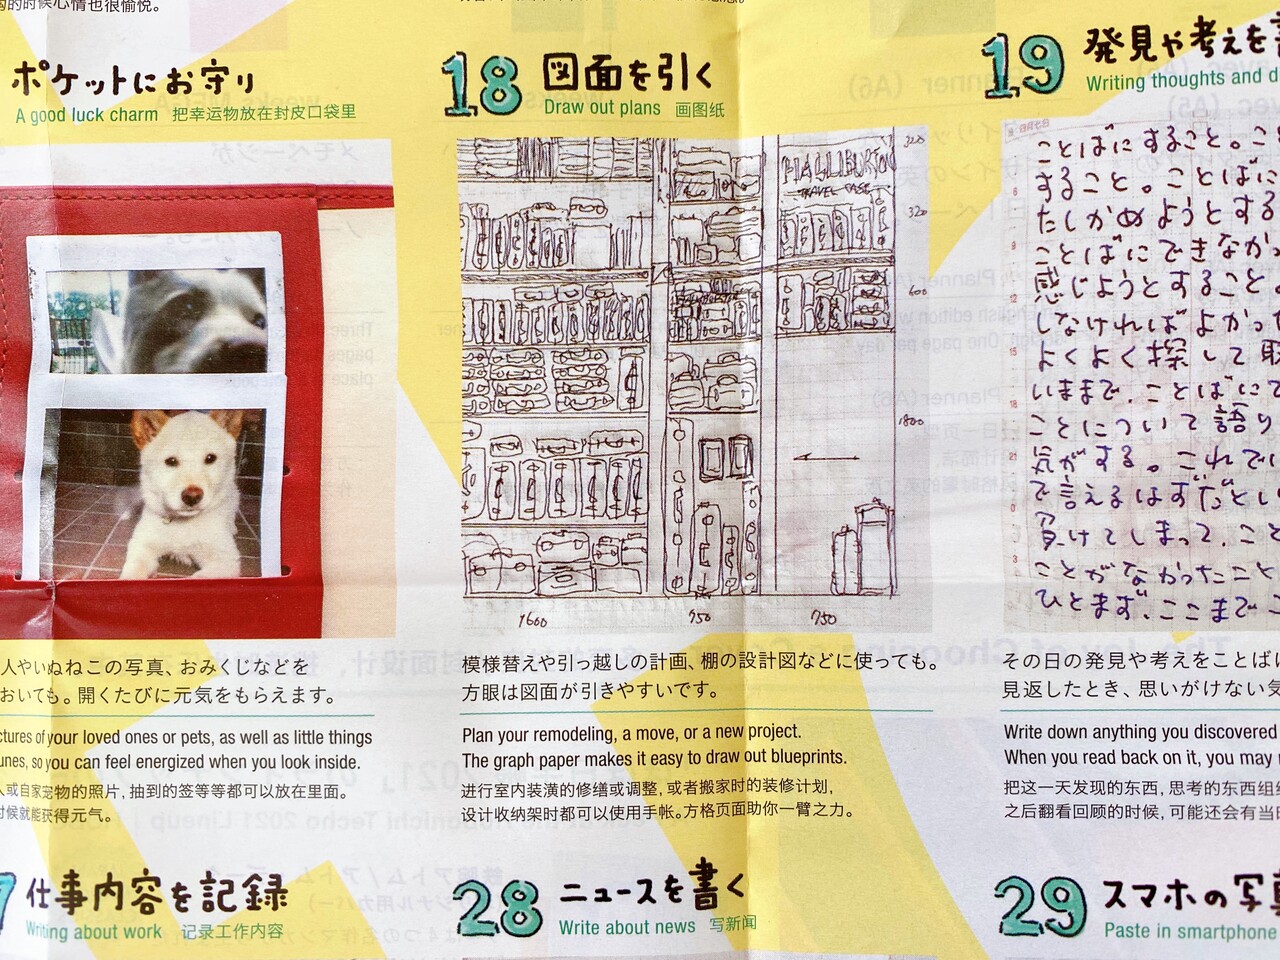 的时候心情也很愉悦。
ポケットにお守り
A good luck charm 把幸运物放在封皮口袋里
人やいぬねこの写真、おみくじなどを
おいても。開くたびに元気をもらえます。
ctures of your loved ones or pets, as well as little things
unes, so you can feel energized when you look inside.
人或自家宠物的照片，抽到的签等等都可以放在里面。
时候就能获得元气。
18 図面を引く
Draw out plans 画图纸
HALLIBURTON
TRAVEL CASE
320
320
600
1800
1600
750
750
模様替えや引っ越しの計画、棚の設計図などに使っても。
方眼は図面が引きやすいです。
Plan your remodeling, a move, or a new project.
The graph paper makes it easy to draw out blueprints.
进行室内装潢的修缮或调整，或者搬家时的装修计划，
设计收纳架时都可以使用手帐。方格页面助你一臂之力。
19 発見や考えを書
Writing thoughts and d
ことばにすること。こ
すること。ことばに
たしかめようとする
ことばにできなか
感じようとすること。
しなければよかって
よくよく探して
いままで、ことばにで
ことについて語り
気がする。これでい
で言えるはずだとい
負けてしまって、こと
ことがなかったこと
ひとまず、ここまでこ
その日の発見や考えをことばに
見返したとき、思いがけない気
Write down anything you discovered
When you read back on it, you may
把这一天发现的东西，思考的东西组织
之后翻看回顾的时候，可能还会有当时
7 仕事内容を記録
Writing about work 记录工作内容
28 ニュースを書く
Write about news 写新闻
29 スマホの写真
Paste in smartphone